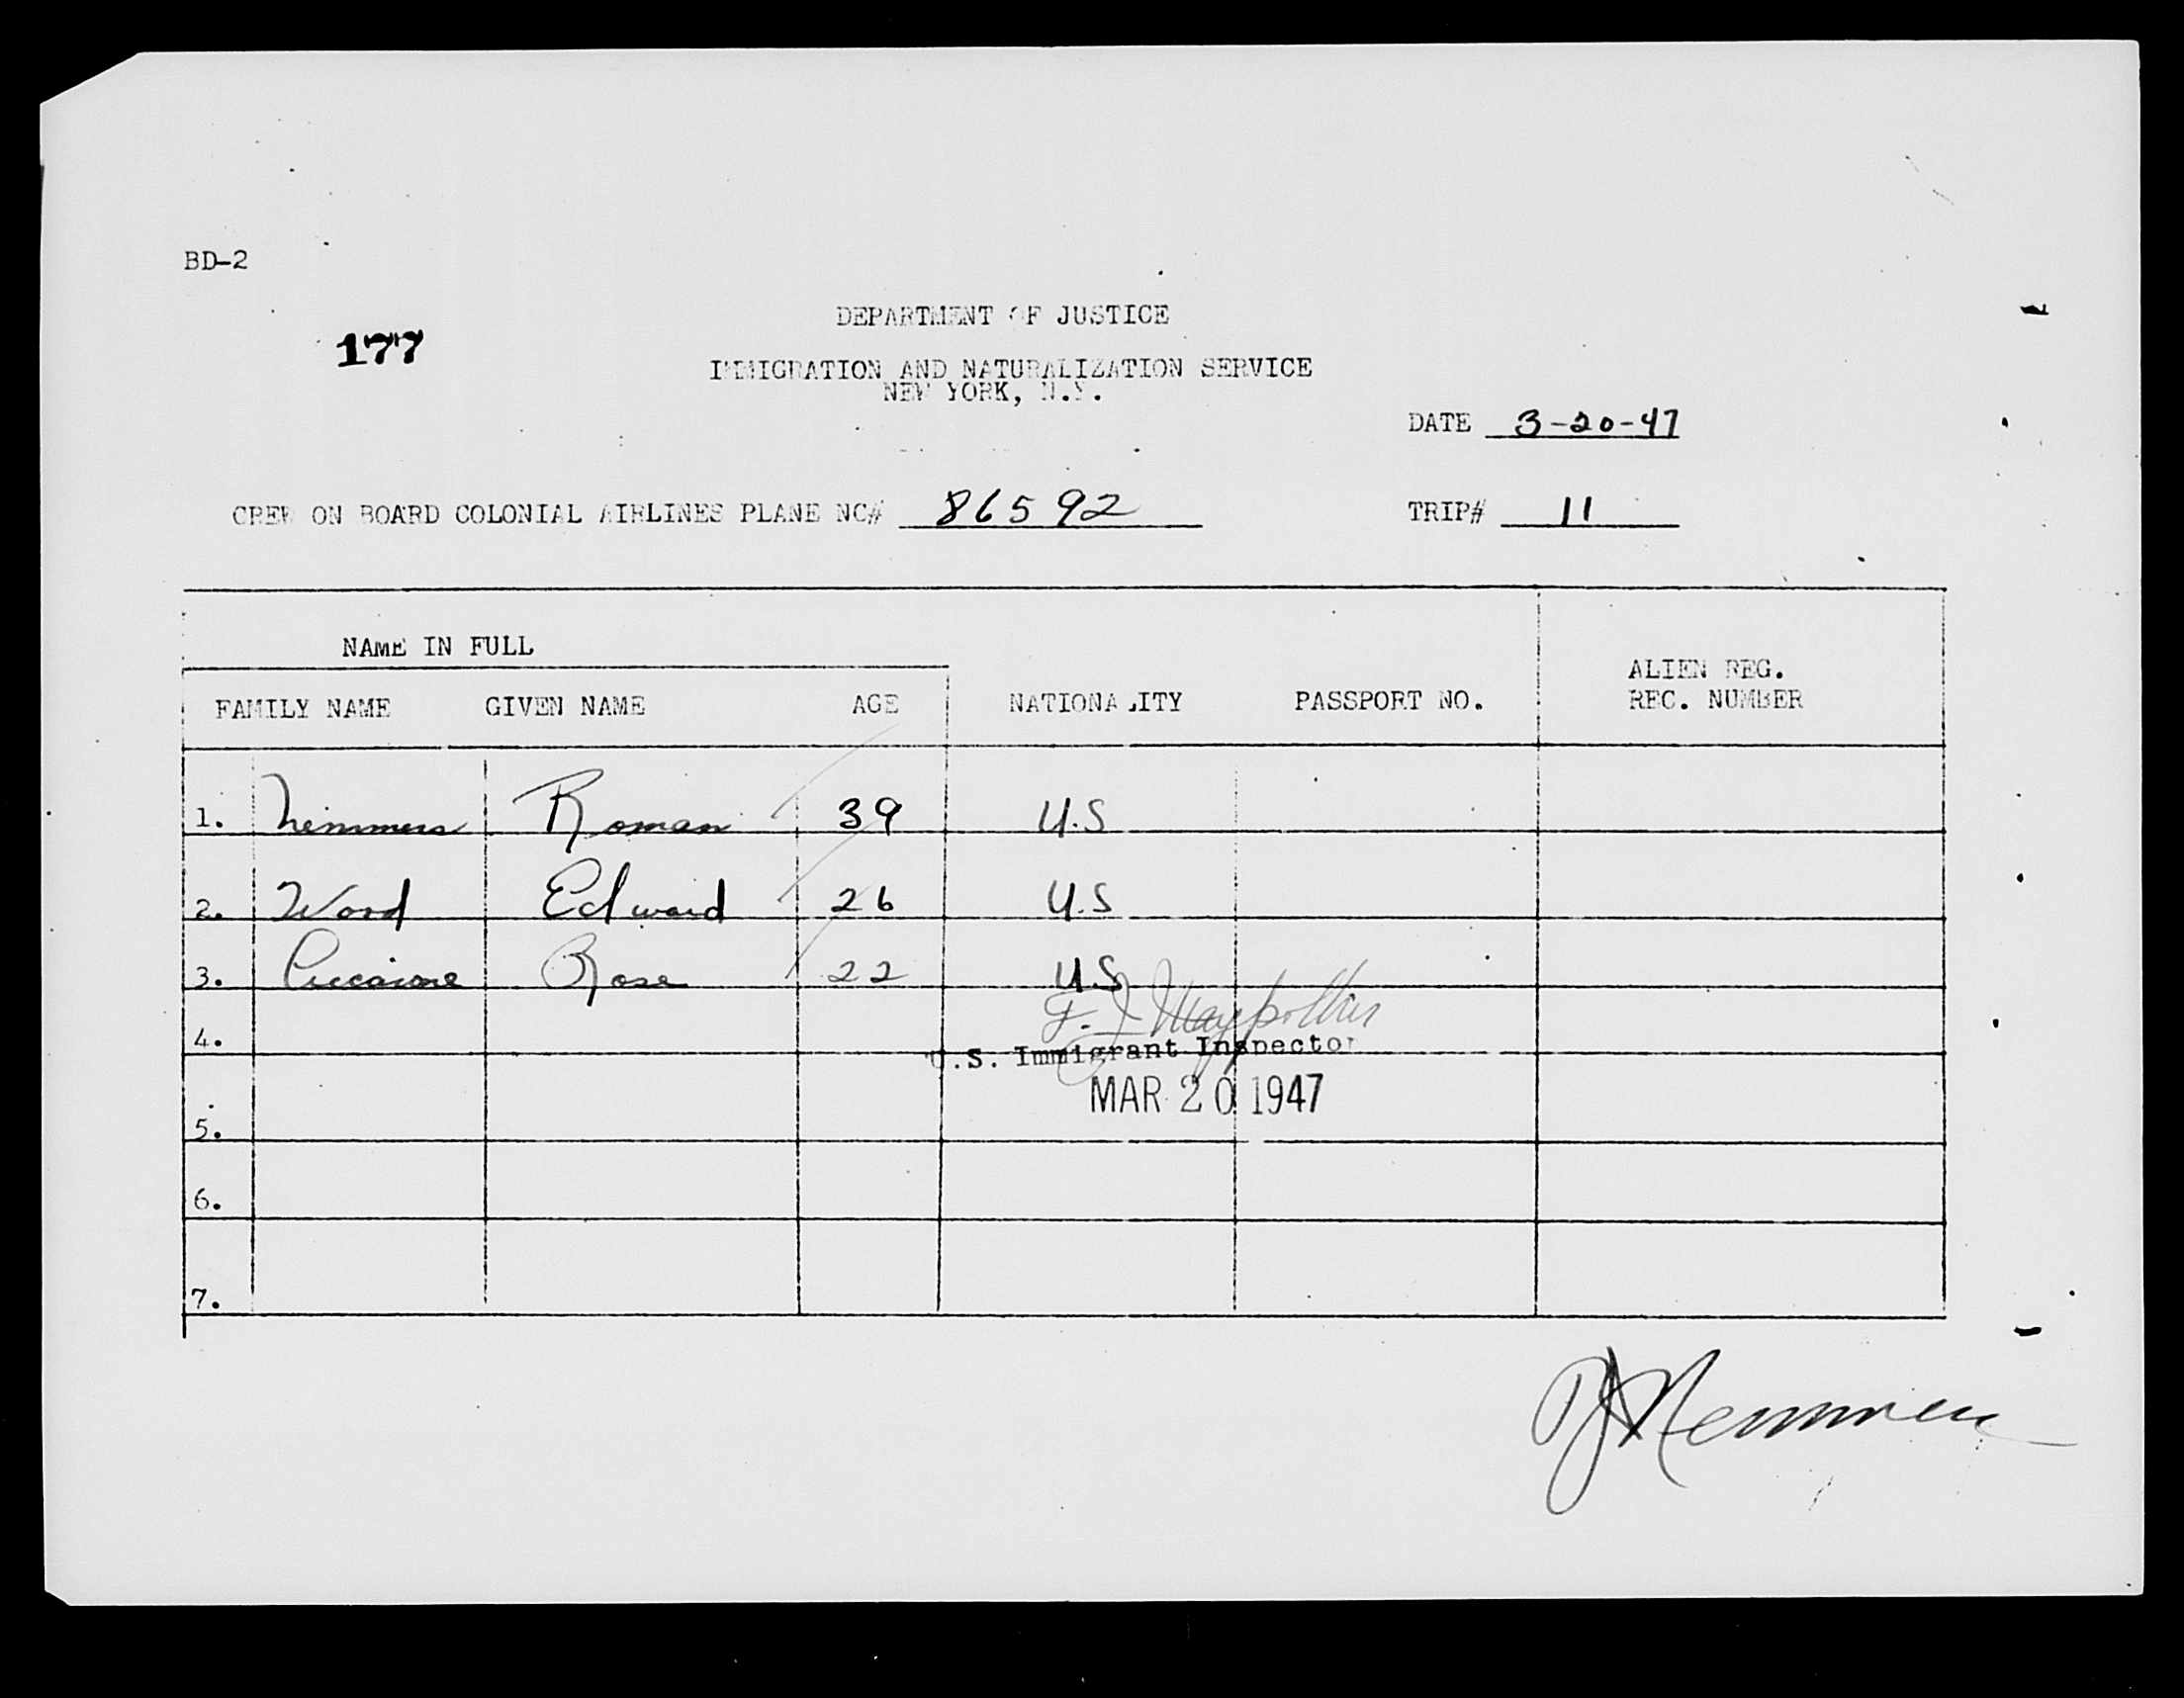 BD-2
177
DEPARTMENT OF JUSTICE
IMMIGRATION AND NATURALIZATION SERVICE
NEW YORK, N.Y.
DATE 3-20-47
CREW ON BOARD COLONIAL AIRLINES PLANE NC# 86592 TRIP# 11
NAME IN FULL
FAMILY NAME GIVEN NAME AGE NATIONALITY PASSPORT NO. ALIEN REG. REC. NUMBER
1. Nemmers Roman 39 U.S
2. Word Edward 26 U.S
3. Rose 22 U.S
F. J.
4.
U.S. Immigrant Inspector
MAR 20 1947
5.
6.
7.
RJ Nemmers